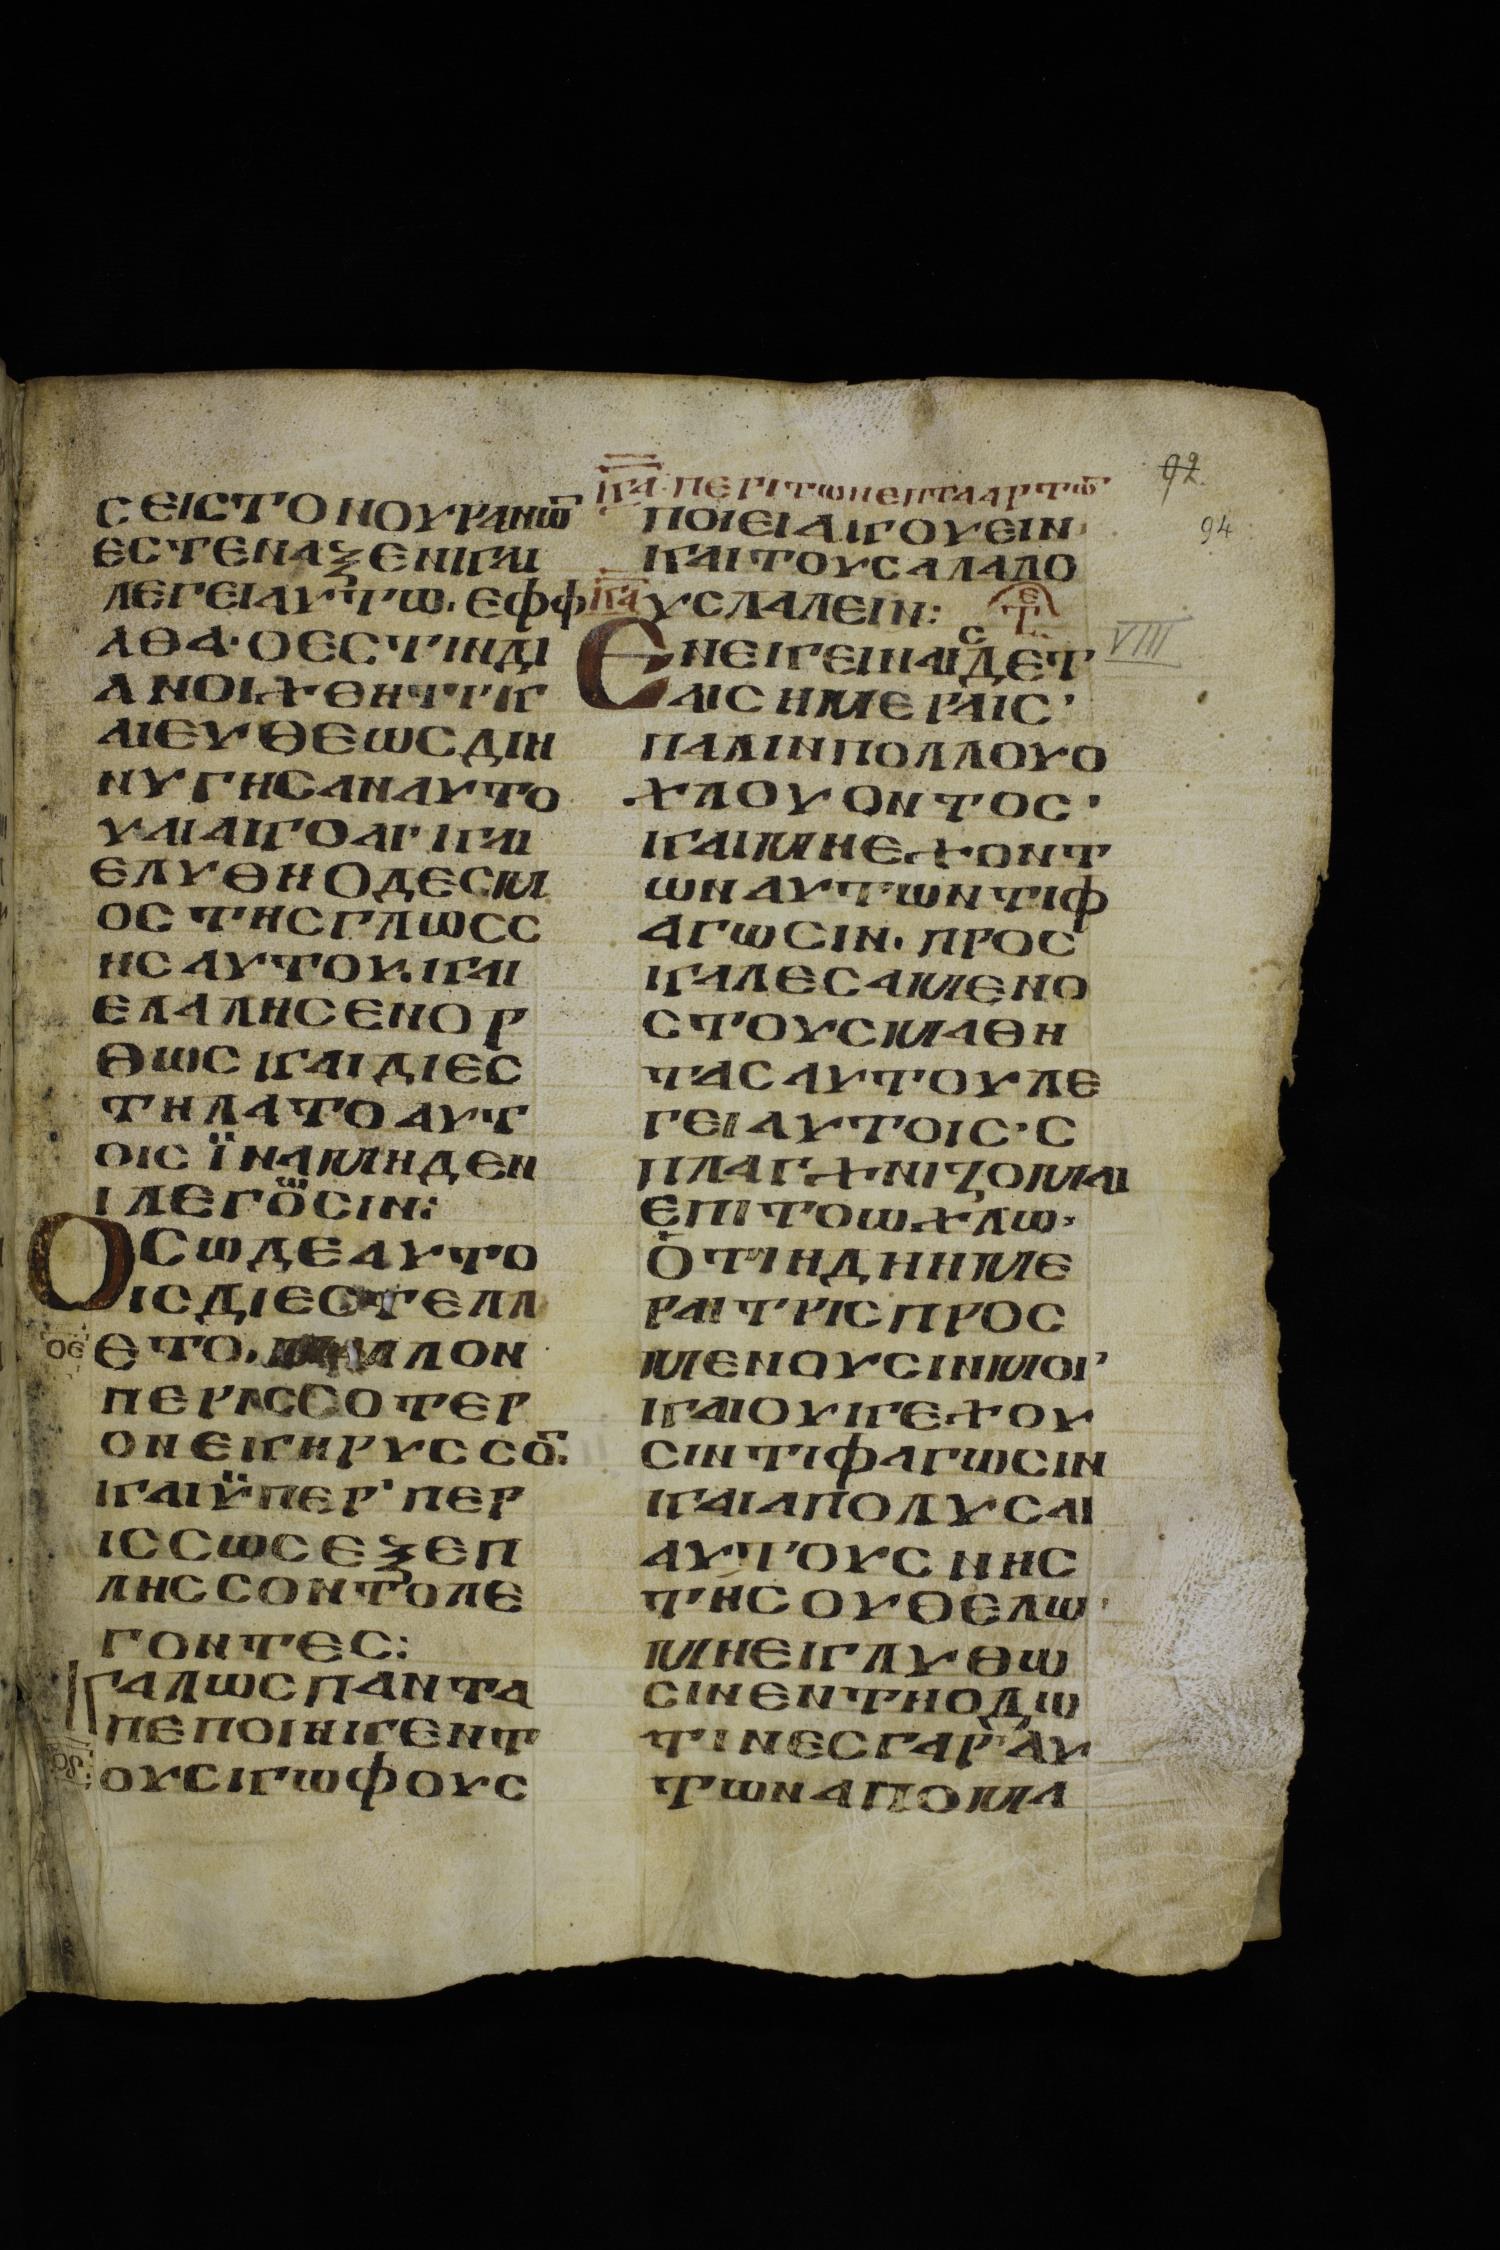 ΙΚΑ ΠΕΡΙΤΩΝΕΠΤΑΑΡΤΩ̅
92
94
ϹΕΙϹΤΟΝΟΥΡΑΝΩ̅
ΕϹΤΕΝΑΞΕΝΙΚΑΙ
ΛΕΓΕΙΑΥΤΩ·ΕΦΦ
ΑΘΑ·ΟΕϹΤΙΝΔΙ
ΑΝΟΙΧΘΗΤΙ'Κ
ΑΙΕΥΘΕΩϹΔΙΗ
ΝΥΓΗϹΑΝΑΥΤΟ
ΥΑΙΑΚΟΑΙ'ΚΑΙ
ΕΛΥΘΗΟΔΕϹΜ
ΟϹΤΗϹΓΛΩϹϹ
ΗϹΑΥΤΟΥ·ΚΑΙ
ΕΛΑΛΗϹΕΝΟΡ
ΘΩϹΚΑΙΔΙΕϹ
ΤΗΛΑΤΟΑΥΤ
ΟΙϹΪΝΑΜΗΔΕΝ
ΙΛΕΓΟϹΙΝ:
ΟϹΩΔΕΑΥΤΟ
ΙϹΔΙΕϹΤΕΛΛ
ΟΕ ΕΤΟ·ΜΑΛΛΟΝ
ΠΕΡΙϹϹΟΤΕΡ
ΟΝΕΚΗΡΥϹϹΟ̅·
ΚΑΙΫΠΕΡ'ΠΕΡ
ΙϹϹΩϹΕΞΕΠ
ΛΗϹϹΟΝΤΟΛΕ
ΓΟΝΤΕϹ:
ΚΑΛΩϹΠΑΝΤΑ
ΠΕΠΟΙΗΚΕΝΤ
ΟΥϹΚΩΦΟΥϹ
ΠΟΙΕΙΑΚΟΥΕΙΝ·
ΚΑΙΤΟΥϹΑΛΑΛΟ
ΚΑ ΥϹΛΑΛΕΙΝ:
VIII
ΕΝΕΚΕΙΝΑΙϹΔΕΤ
ΑΙϹΗΜΕΡΑΙϹ'
ΠΑΛΙΝΠΟΛΛΟΥΟ
ΧΛΟΥΟΝΤΟϹ'
ΚΑΙΜΗΕΧΟΝΤ
ΩΝΑΥΤΩΝΤΙΦ
ΑΓΩϹΙΝ·ΠΡΟϹ
ΚΑΛΕϹΑΜΕΝΟ
ϹΤΟΥϹΜΑΘΗ
ΤΑϹΑΥΤΟΥΛΕ
ΓΕΙΑΥΤΟΙϹ·Ϲ
ΠΛΑΓΧΝΙΖΟΜΑΙ
ΕΠΙΤΟΩΧΛΩ·
ΟΤΙΗΔΗΗΜΕ
ΡΑΙΤΡΙϹΠΡΟϹ
ΜΕΝΟΥϹΙΝΜΟΙ'
ΚΑΙΟΥΚΕΧΟΥ
ϹΙΝΤΙΦΑΓΩϹΙΝ
ΚΑΙΑΠΟΛΥϹΑΙ
ΑΥΤΟΥϹΝΗϹ
ΤΗϹΟΥΘΕΛΩ'
ΜΗΕΚΛΥΘΩ
ϹΙΝΕΝΤΗΟΔΩ
ΤΙΝΕϹΓΑΡ'ΑΥ
ΤΩΝΑΠΟΜΑ